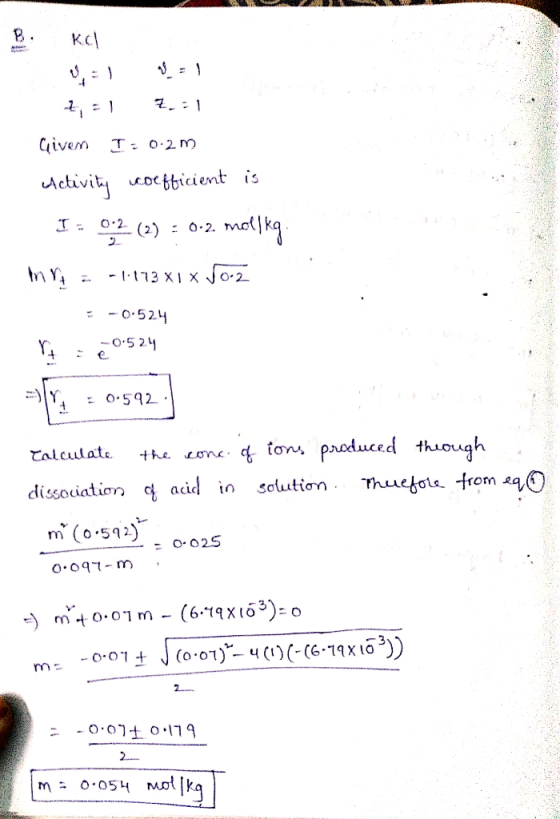 B. KCl
ν₊ = 1 ν₋ = 1
z₁ = 1 z₋ = 1
Given I = 0.2m
Activity coefficient is
I = 0.2/2 (2) = 0.2 mol/kg.
ln γ± = -1.173 x 1 x √0.2
= -0.524
γ± = e^-0.524
⇒ γ± = 0.592.
Calculate the conc. of ions produced through
dissociation of acid in solution. Therefore from eq ①
m²(0.592)²/0.097-m = 0.025
⇒ m²+0.07m - (6.79x10⁻³)=0
m = -0.07 ± √(0.07)²-4(1)(-(6.79x10⁻³))/2
= -0.07 ± 0.179/2
m = 0.054 mol/kg